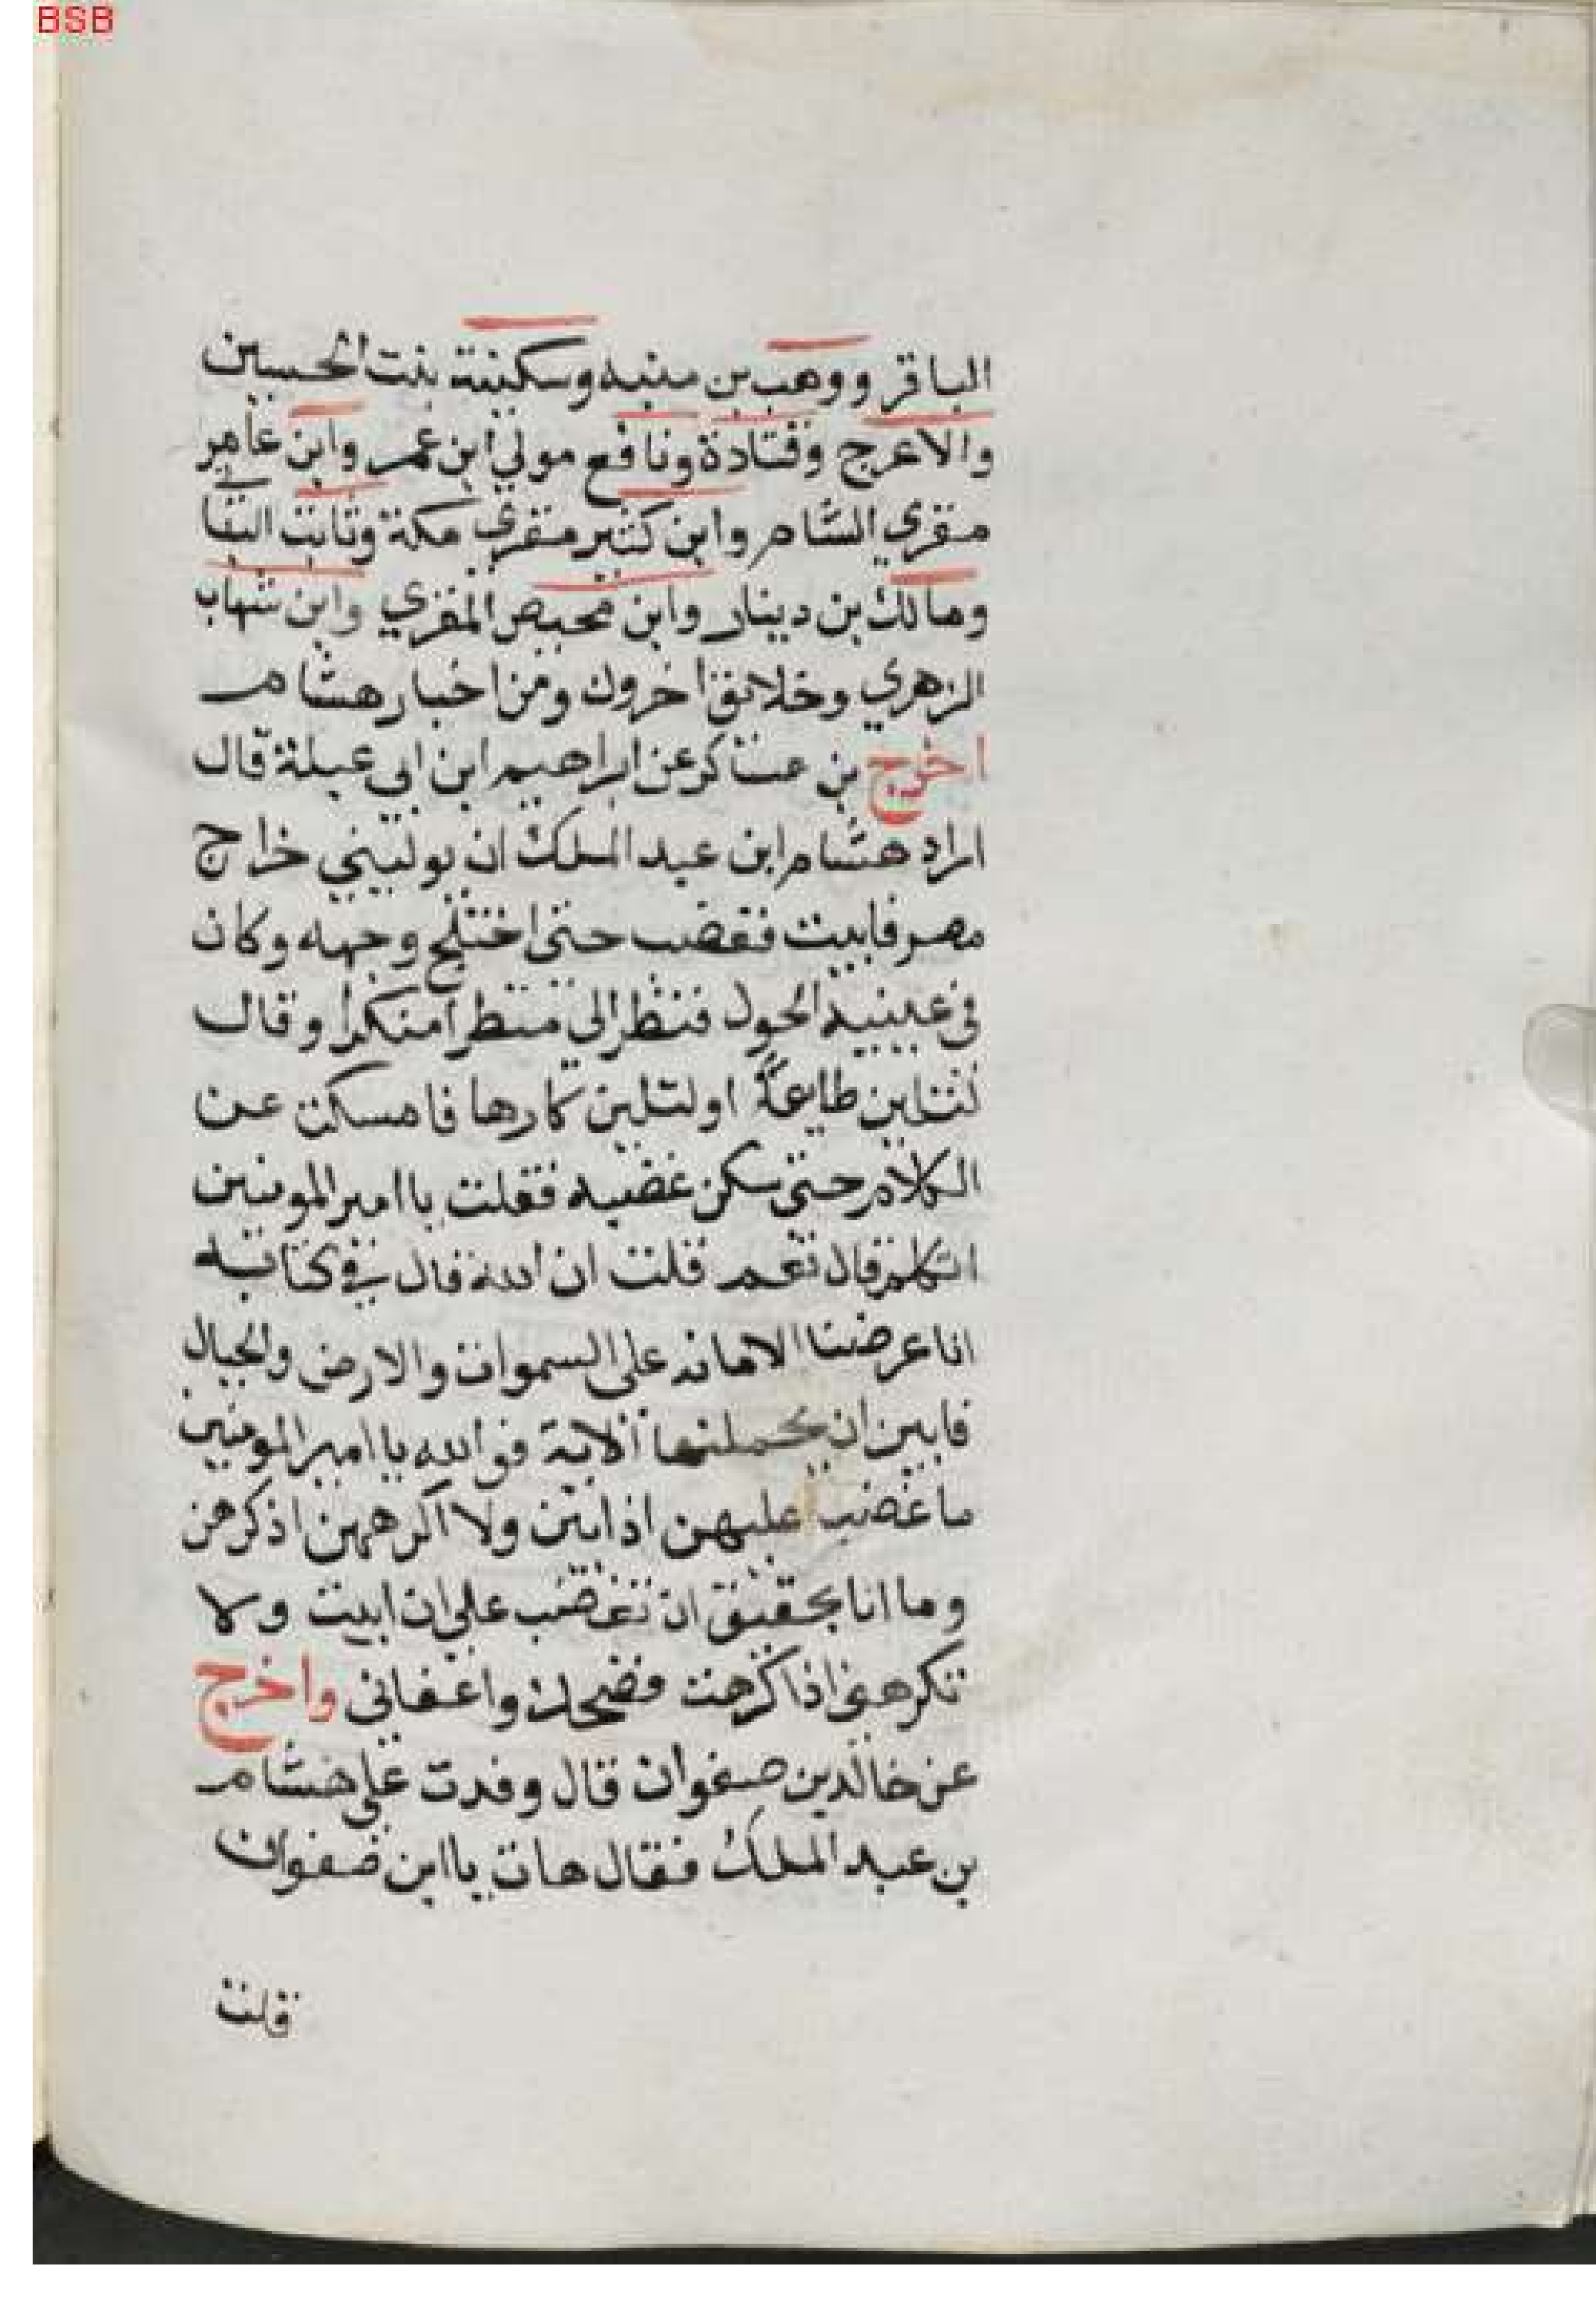 BSB
الباقر ووهب بن منبه وسكينة بنت الحسين
والاعرج وقتادة ونافع مولي ابن عمر وابن عامر
مقري الشام وابن كثير مقري مكة وثابت البنا
ني
ومالك بن دينار وابن محيصن المقري وابن شهاب
الزهري وخلائق اخرون ومن اخبار هشام
اخرج بن عساكر عن ابراهيم ابن ابي عبلة قال
اراد هشام ابن عبد الملك ان يوليني خراج
مصر فابيت فغضب حتى اختلج وجهه وكان
في عينيه الحول فنظر الي منظرا منكرا وقال
لتلين طايعة او لتلين كارها فامسكت عن
الكلام حتى سكن غضبه فقلت يا امير المومنين
اتكلم قال نعم قلت ان الله قال في كتابه
انا عرضنا الامانه على السموات والارض والجبال
فابين ان يحملنها الاية فوالله يا امير المومنين
ما غضب عليهن اذ ابين ولا اكرههن اذ كرهن
وما انا بحقيق ان تغضب علي ان ابيت ولا
تكرهني اذا كرهت فضحك واعفاني واخرج
عن خالد بن صفوان قال وفدت على هشام
بن عبد الملك فقال هات يا ابن صفوان
قلت